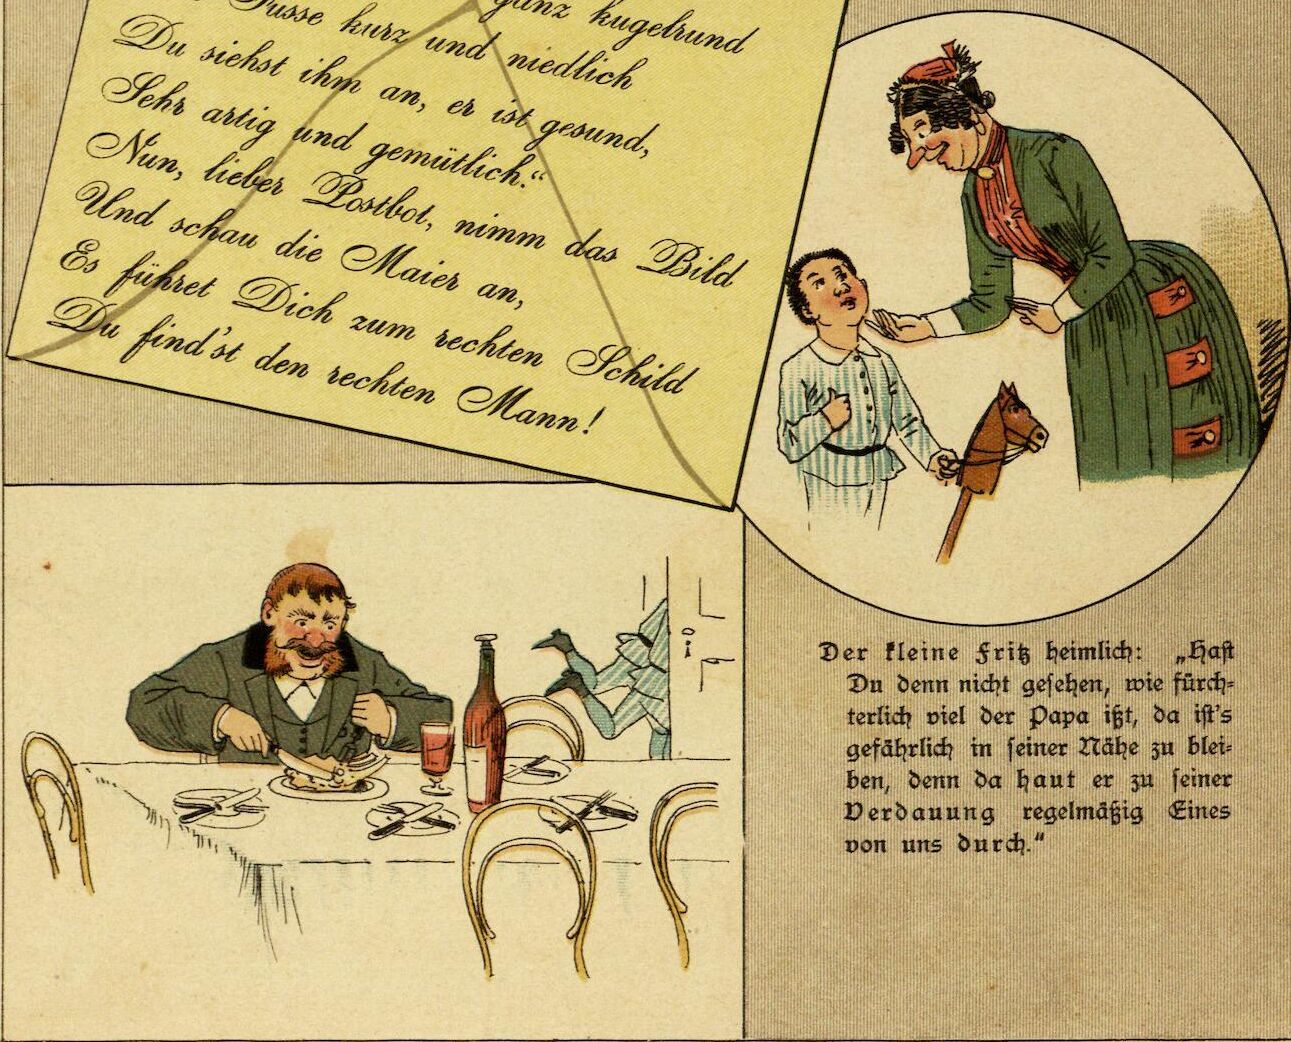 Füsse kurz und niedlich
ganz kugelrund
Du siehst ihm an, er ist gesund,
Sehr artig und gemütlich.“
Nun, lieber Postbot, nimm das Bild
Und schau die Maier an,
Es führet Dich zum rechten Schild
Du find'st den rechten Mann!
Der kleine Fritz heimlich: „Hast
Du denn nicht gesehen, wie fürch-
terlich viel der Papa ißt, da ist's
gefährlich in seiner Nähe zu blei-
ben, denn da haut er zu seiner
Verdauung regelmäßig Eines
von uns durch.“